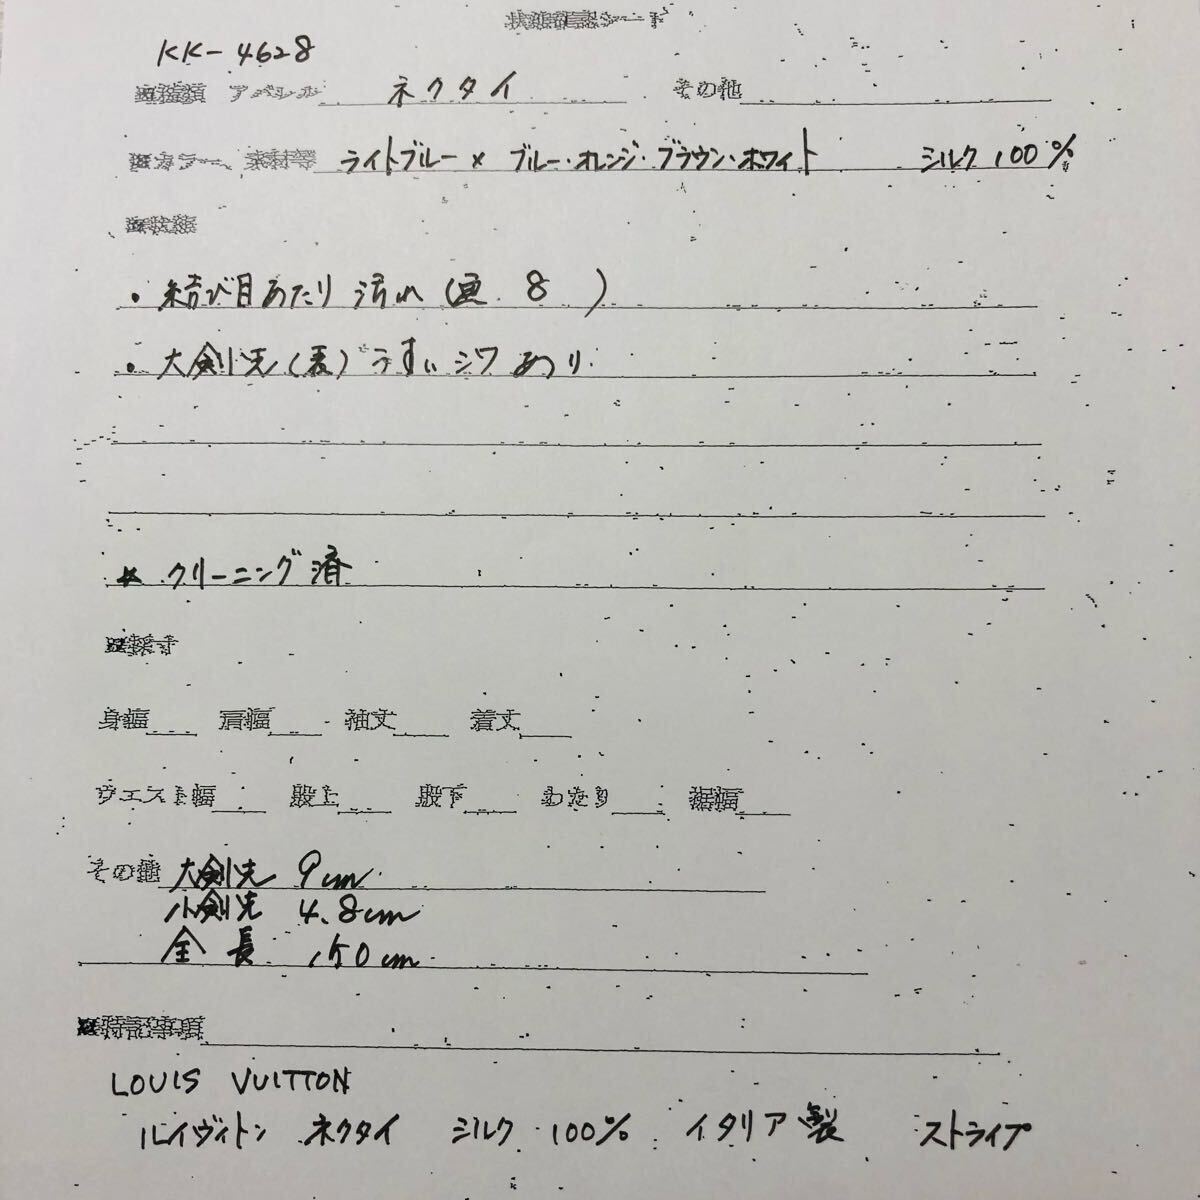 状態確認シート
KK-4628
■種類 アパレル ネクタイ その他
■カラー、素材等 ライトブルー× ブルー・オレンジ・ブラウン・ホワイト シルク 100%
■状態
・結び目あたり 汚れ(画. 8 )
・大剣先(表)うすいシワあり.
★ クリーニング済
■採寸
身幅 肩幅 袖丈 着丈
ウエスト幅 股上 股下 わたり 裾幅
その他 大剣先 9cm
小剣先 4.8cm
全長 150cm
■特記事項
LOUIS VUITTON
ルイヴィトン ネクタイ シルク 100% イタリア製 ストライプ